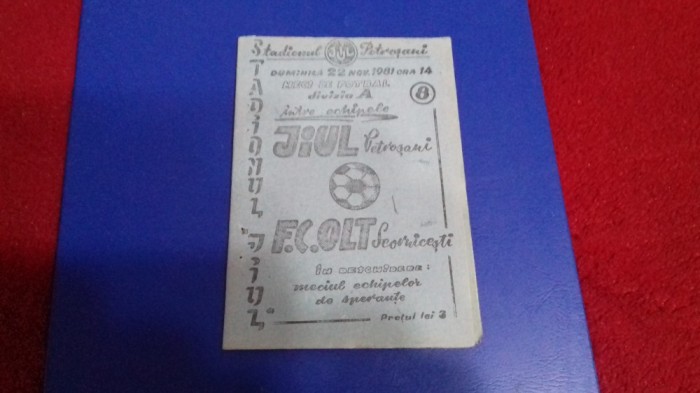 Stadionul JIUL Petroșani
DUMINICĂ 22 NOV. 1981 ORA 14
MECI DE FOTBAL
divizia A
8
între echipele
JiUL Petroșani
F.C. OLT Scornicești
În deschidere:
meciul echipelor
de speranțe
Prețul lei 3
STADIONUL "JIUL"